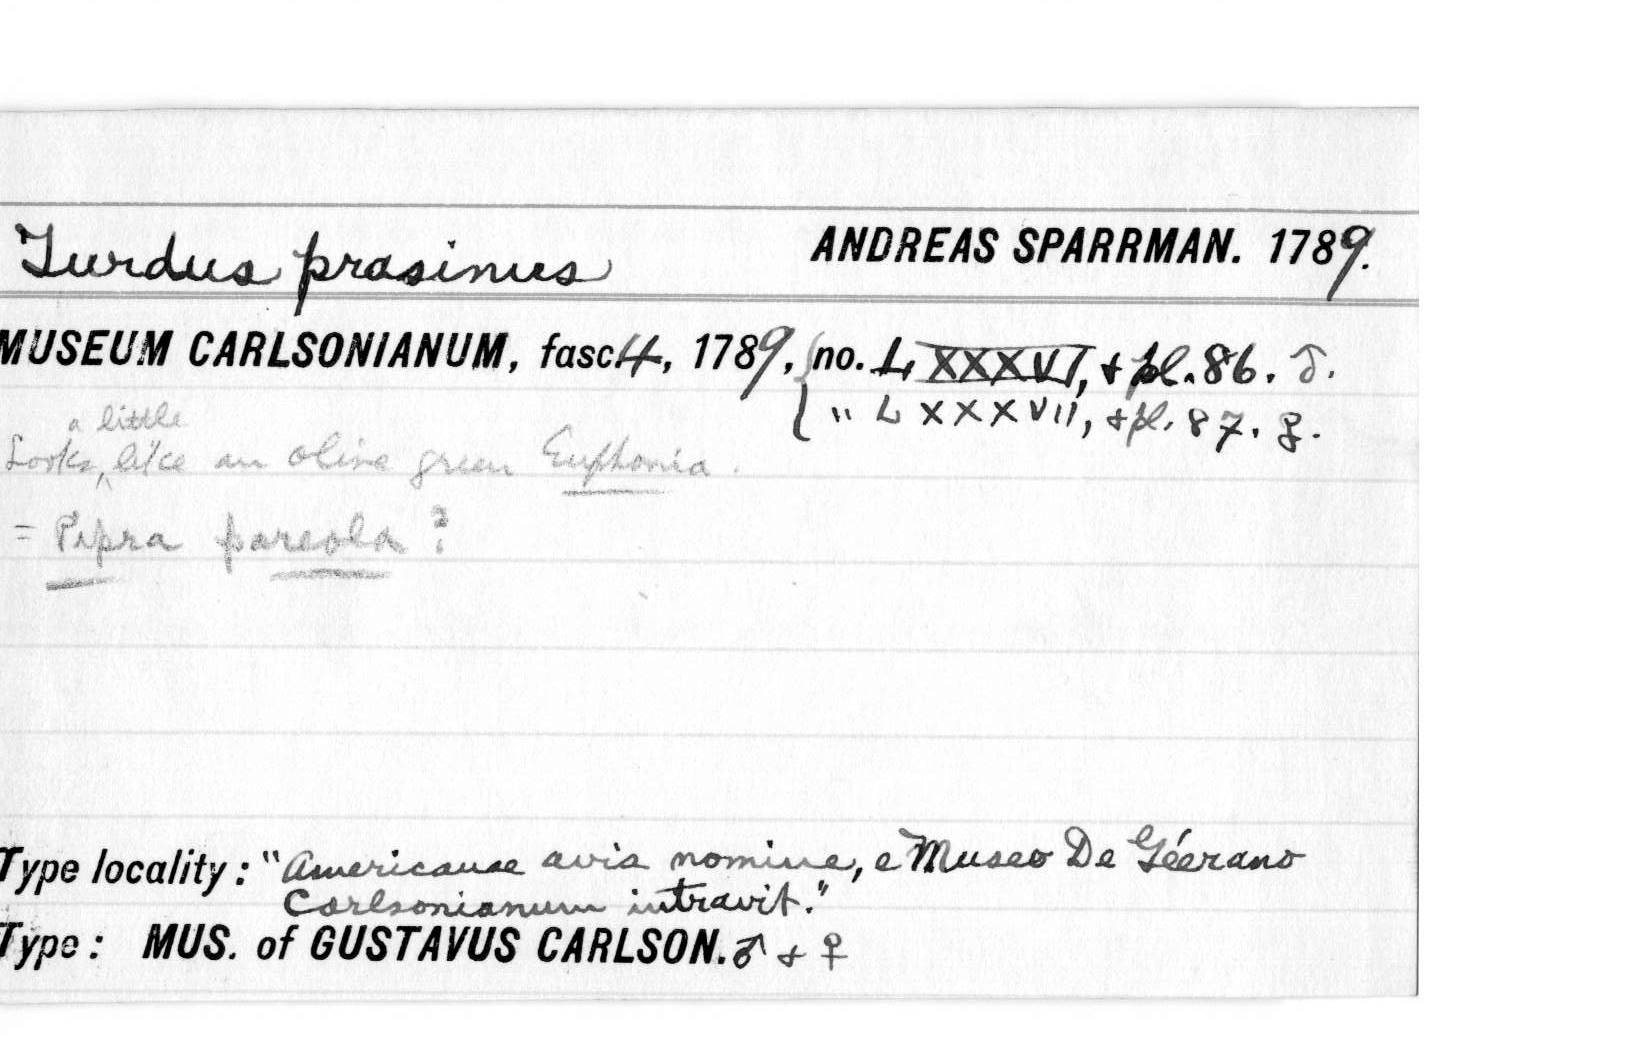 Turdus prasinus ANDREAS SPARRMAN. 1789.
MUSEUM CARLSONIANUM, fasc. 4, 1789, { no. LXXXVI, + pl. 86. ♂.
" LXXXVII, + pl. 87. ♀.
a little
Looks ‸ like an olive green Euphonia.
= Pipra pareola ?
Type locality: "Americanae avis nomine, e Museo De Géerano
Carlsonianum intravit."
Type: MUS. of GUSTAVUS CARLSON. ♂ + ♀